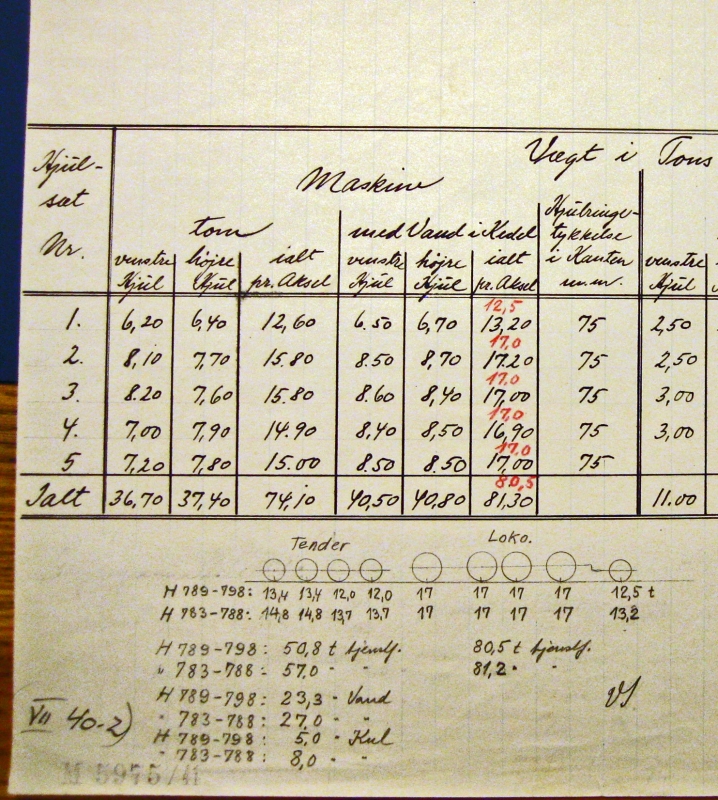 Vægt i Tons
Hjul-
sæt
Nr.
Maskine
tom
med Vand i Kedel
Hjulrings-
tykkelse
i Kanten
m.m.
venstre Hjul
højre Hjul
ialt pr. Aksel
venstre Hjul
højre Hjul
ialt pr. Aksel
venstre Hjul
12,5
1. 6,20 6,40 12,60 6.50 6,70 13,20 75 2,50
17.0
2. 8,10 7,70 15.80 8.50 8,70 17.20 75 2,50
17.0
3. 8.20 7,60 15.80 8.60 8,40 17,00 75 3,00
17.0
4. 7,00 7,90 14.90 8,40 8,50 16,90 75 3,00
17.0
5 7,20 7,80 15.00 8.50 8.50 17,00 75
80,5
Ialt 36,70 37,40 74,10 40,50 40,80 81,30 11.00
Tender Loko.
H 789-798: 13,4 13,4 12,0 12,0 17 17 17 17 12,5 t
H 783-788: 14,8 14,8 13,7 13,7 17 17 17 17 13,2
H 789-798: 50,8 t tjenstf. 80,5 t tjenstf.
" 783-788: 57.0 - " 81,2 " "
H 789-798: 23,3 - Vand
" 783-788: 27.0 - "
H 789-798: 5,0 - Kul
" 783-788: 8,0 - "
VII 40-2)
M 5975/41